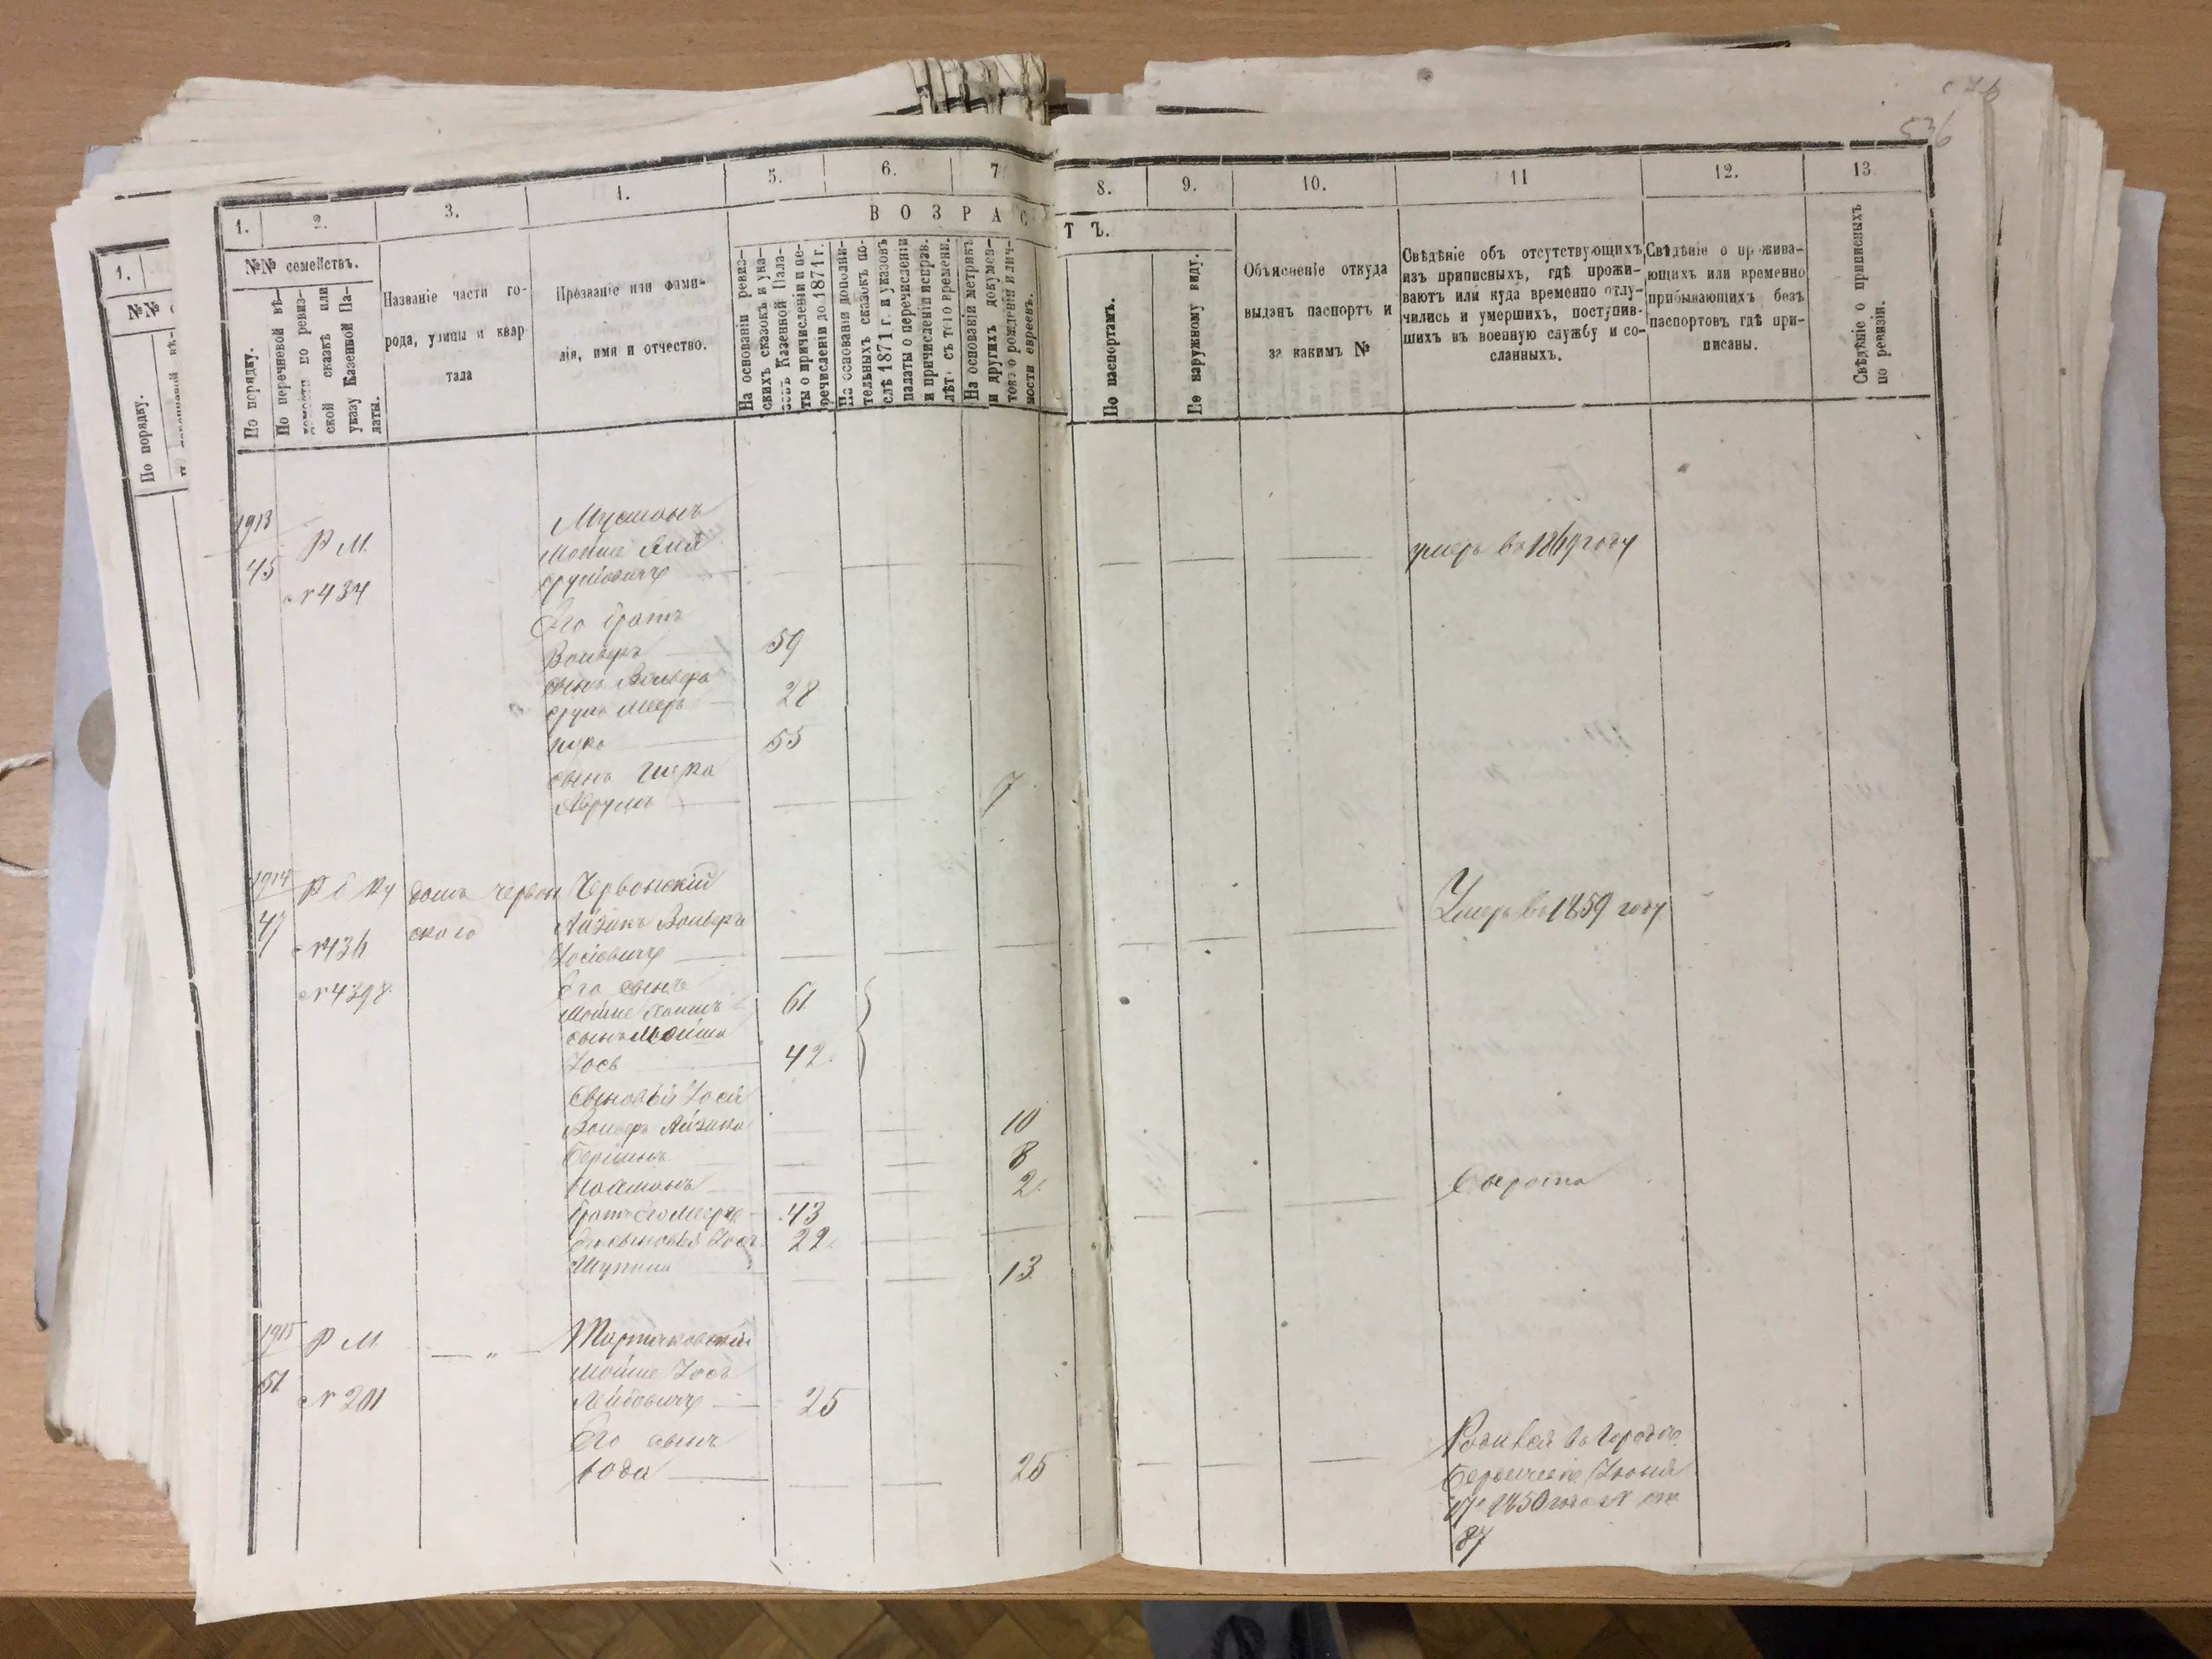 536
1. 2. 3. 4. 5. 6. 7 8. 9. 10. 11 12. 13
ВОЗРАСТЪ.
№№ семействъ.
По порядку.
По перечневой вѣдомости по ревизской сказкѣ или указу Казенной Палаты.
Названіе части города, улицы и квартала
Прозваніе или фамилія, имя и отчество.
На основаніи ревизскихъ сказокъ и указовъ Казенной Палаты о причисленіи и перечисленіи до 1871 г.
На основаніи дополнительныхъ сказокъ послѣ 1871 г. и указовъ палаты о перечисленіи и причисленіи исправ. лѣт съ того времени.
На основаніи метрикъ и другихъ документовъ о рожденіи и личности евреевъ.
По паспортамъ.
По наружному виду.
Объясненіе откуда
выданъ паспортъ и
за какимъ №
Свѣдѣніе объ отсутствующихъ
изъ приписныхъ, гдѣ прожи-
ваютъ или куда временно отлу-
чились и умершихъ, поступив-
шихъ въ военную службу и со-
сланныхъ.
Свѣдѣніе о прожива-
ющихъ или временно
прибывающихъ безъ
паспортовъ гдѣ при-
писаны.
Свѣдѣніе о приписныхъ
по ревизіи.
1.
№№
По порядку.
1913
45
Р М.
№ 434
Мойше
Сруловичъ
умеръ въ 1869 году
Его братъ
Вольфъ 59
сынъ Вольфа
Сруль Мееръ 28
Ицко 55
сынъ Ицка
Аврумъ 7
1914
47
№ 436
№ 4398
домъ Червон
ского
Червонскій
Айзикъ Вольфъ
Іосіовичъ
Умеръ въ 1859 году
Его сынъ
Мойше 61
сынъ Мойши
Іось 42
Сыновья Іося
Вольфъ Айзикъ 10
8
2
Сирота
братъ его 43
Его сыновья Іось 22
13
1915
51
Р М.
№ 201
"
Мойше Іось
Лейбовичъ 25
Его сынъ
Юда 25
Родился въ городѣ
Бердичевѣ Іюня
17 1850 года №
87